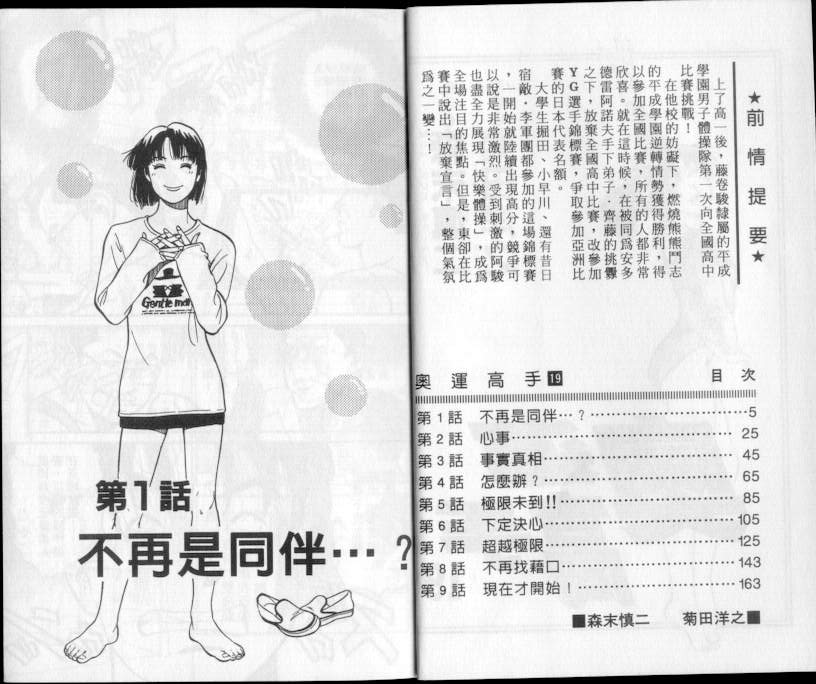 ★前情提要★
上了高一後，藤卷駿隸屬的平成
學園男子體操隊第一次向全國高中
比賽挑戰！
在他校的妨礙下，燃燒熊熊鬥志
的平成學園逆轉情勢獲得勝利，得
以參加全國比賽，所有的人都非常
欣喜。就在這時候，在被同為安多
德雷阿諾夫手下弟子·齊藤的挑釁
之下，放棄全國高中比賽，改參加
YG選手錦標賽，爭取參加亞洲比
賽的日本代表名額。
大學生堀田、小早川、還有昔日
宿敵·李軍團都參加的這場錦標賽
，一開始就陸續出現高分，競爭可
以說是非常激烈。受到刺激的阿駿
也盡全力展現「快樂體操」，成為
全場注目的焦點。但是，東卻在比
賽中說出「放棄宣言」，整個氣氛
為之一變…！
奧運高手19 目次
第1話 不再是同伴…？…………5
第2話 心事…………25
第3話 事實真相…………45
第4話 怎麼辦？…………65
第5話 極限未到!!…………85
第6話 下定決心…………105
第7話 超越極限…………125
第8話 不再找藉口…………143
第9話 現在才開始！…………163
■森末慎二 菊田洋之■
Gentle man
第1話
不再是同伴…？